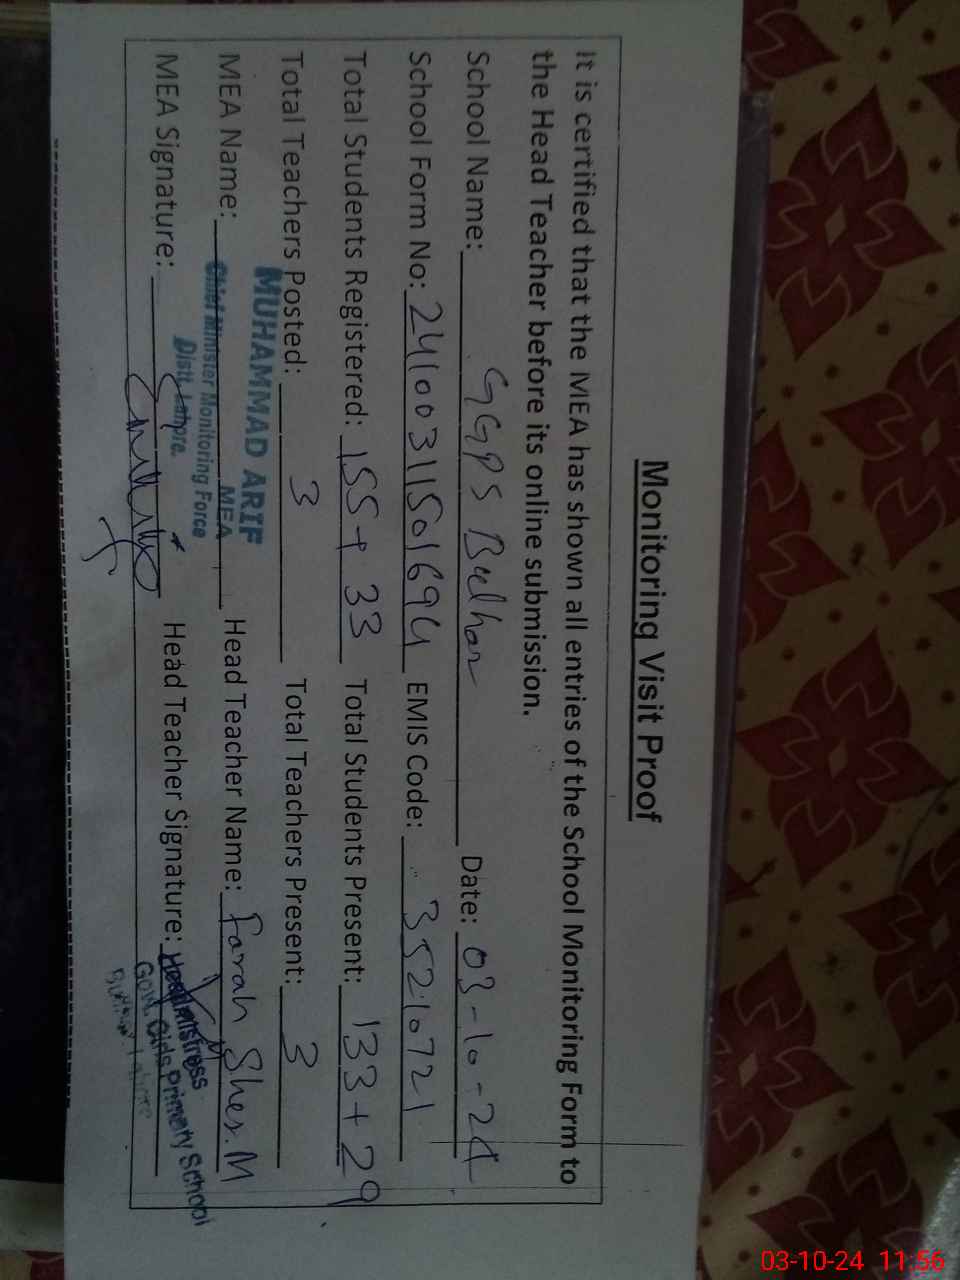 Monitoring Visit Proof
It is certified that the MEA has shown all entries of the School Monitoring Form to
the Head Teacher before its online submission.
School Name: GGPS Bulhar Date: 03-10-24
School Form No: 24100311501694 EMIS Code: 35210721
Total Students Registered: 155+33 Total Students Present: 133+29
Total Teachers Posted: 3 Total Teachers Present: 3
MUHAMMAD ARIF
MEA Name: MEA Head Teacher Name: Farah Sher. M
Chief Minister Monitoring Force
Distt. Lahore.
MEA Signature: Head Teacher Signature: Headmistress
Govt. Girls Primary School
Lahore
03-10-24 11:56